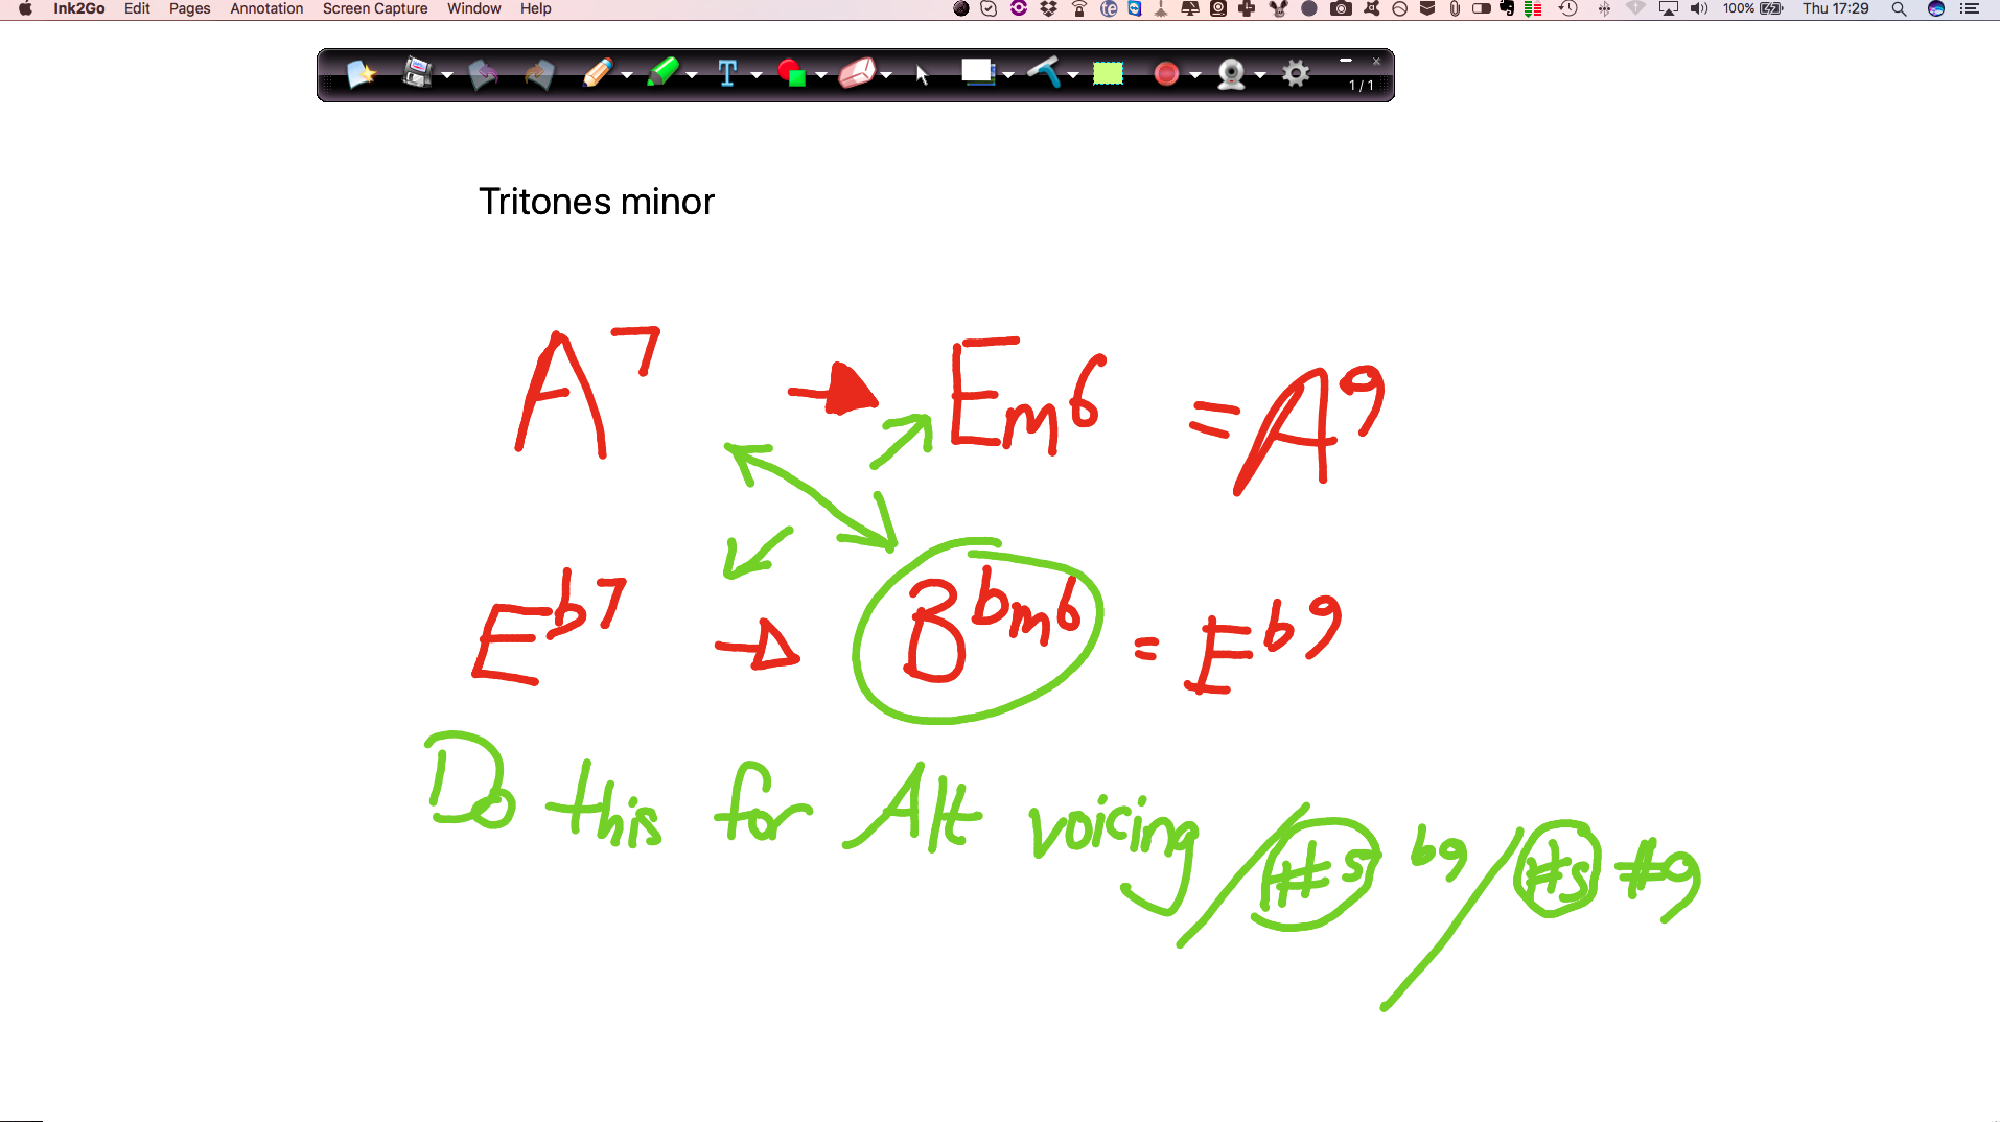 Ink2Go Edit Pages Annotation Screen Capture Window Help 100% Thu 17:29
1/1
Tritones minor
A7 → Em6 = A9
Eb7 → Bbm6 = Eb9
Do this for Alt voicing / #5 b9 / #5 #9